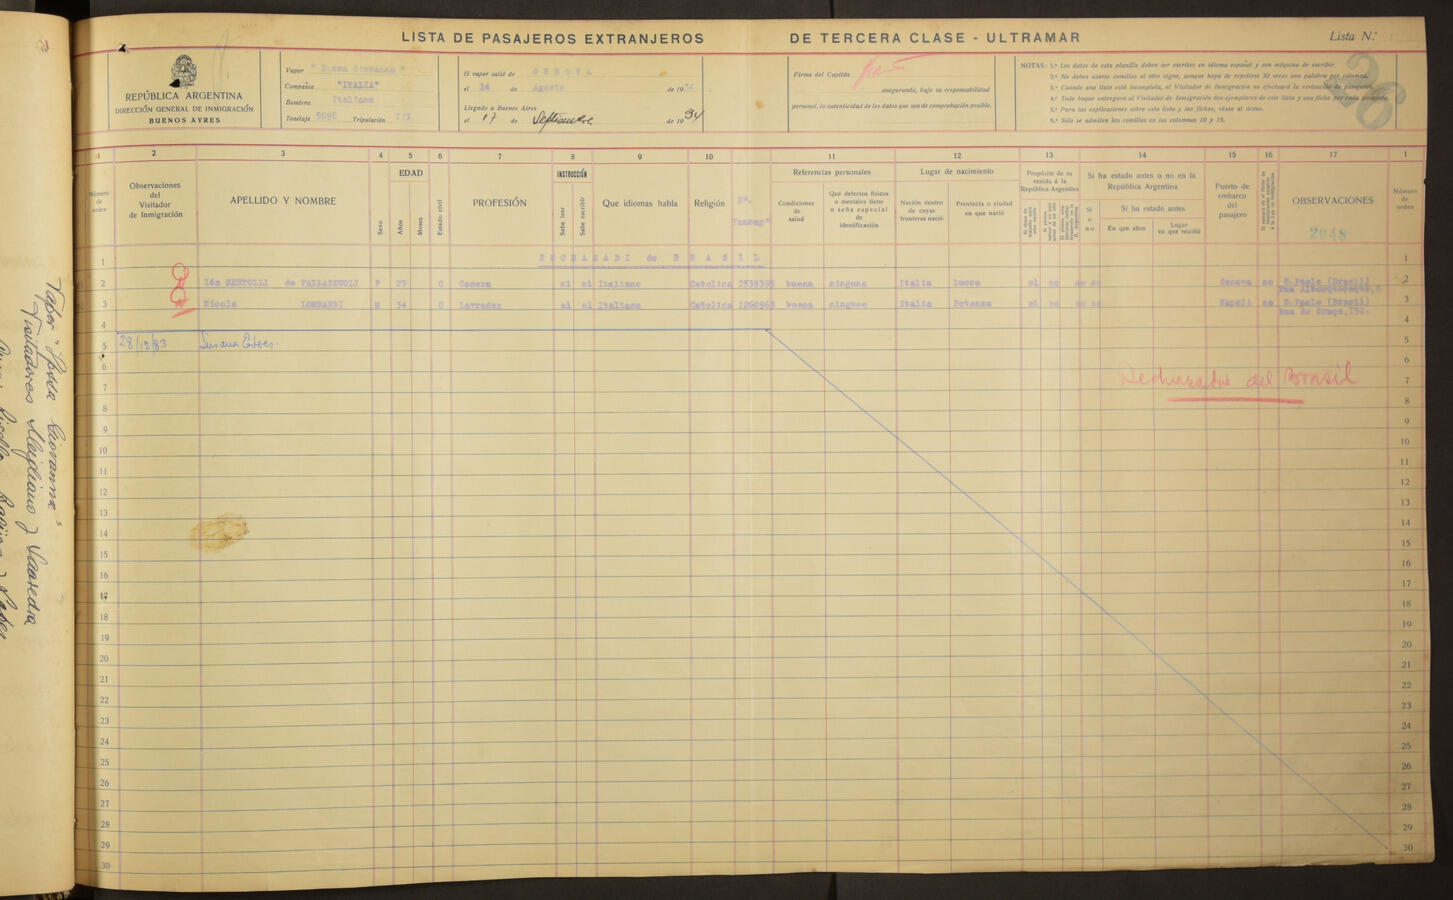 LISTA DE PASAJEROS EXTRANJEROS DE TERCERA CLASE - ULTRAMAR
Lista N.º
REPÚBLICA ARGENTINA
DIRECCIÓN GENERAL DE INMIGRACIÓN
BUENOS AIRES
Vapor
Compañía "ITALIA"
Bandera Italiana
Tonelaje Tripulación
El vapor salió de GENOVA
el 24 de Agosto de 1934
Llegado a Buenos Aires
el 17 de Septiembre de 1934
Firma del Capitán
asegurando, bajo su responsabilidad
personal, la autenticidad de los datos que son de comprobación posible.
NOTAS: 1.ª Los datos de esta planilla deben ser escritos en idioma español y con máquina de escribir.
2.ª No deben usarse comillas ni otro signo, aunque haya de repetirse 30 veces una palabra por columna.
3.ª Cuando una lista está incompleta, el Visitador de Inmigración no efectuará la revisación de pasajeros.
4.ª Todo buque entregará al Visitador de Inmigración dos ejemplares de esta lista y una ficha por cada pasajero.
5.ª Para las explicaciones sobre esta lista y las fichas, véase al dorso.
6.ª Sólo se admiten las comillas en las columnas 10 y 15.
26
1 2 3 4 5 6 7 8 9 10 11 12 13 14 15 16 17 1
Número de orden
Observaciones del Visitador de Inmigración
APELLIDO Y NOMBRE
Sexo
EDAD
Años
Meses
Estado civil
PROFESIÓN
INSTRUCCIÓN
Sabe leer
Sabe escribir
Que idiomas habla
Religión
Referencias personales
Condiciones de salud
Qué defectos físicos o mentales tiene o seña especial de identificación
Lugar de nacimiento
Nación dentro de cuyas fronteras nació
Provincia o ciudad en que nació
Propósito de su venida á la República Argentina
Si ha estado antes o no en la República Argentina
Si o no
Si ha estado antes
En que años
Lugar en que residió
Puerto de embarco del pasajero
OBSERVACIONES
2048
Número de orden
1 RECHAZADI de BRASIL 1
2 Ida BERTOLLI de F 27 C Casera si si Italiano Catolica buena ninguno Italia Lucca si no no no Genova no S.Paolo (Brasil) 2
3 Nicola LOMBARDI M 34 C Lavrador si si Italiano Catolica buena ninguno Italia Potenza si no no no Napoli no S.Paolo (Brasil) 3
4 4
5 28/12/83 Susana Esteves 5
6 6
7 Rechazados del Brasil 7
8 8
9 9
10 10
11 11
12 12
13 13
14 14
15 15
16 16
17 17
18 18
19 19
20 20
21 21
22 22
23 23
24 24
25 25
26 26
27 27
28 28
29 29
30 30